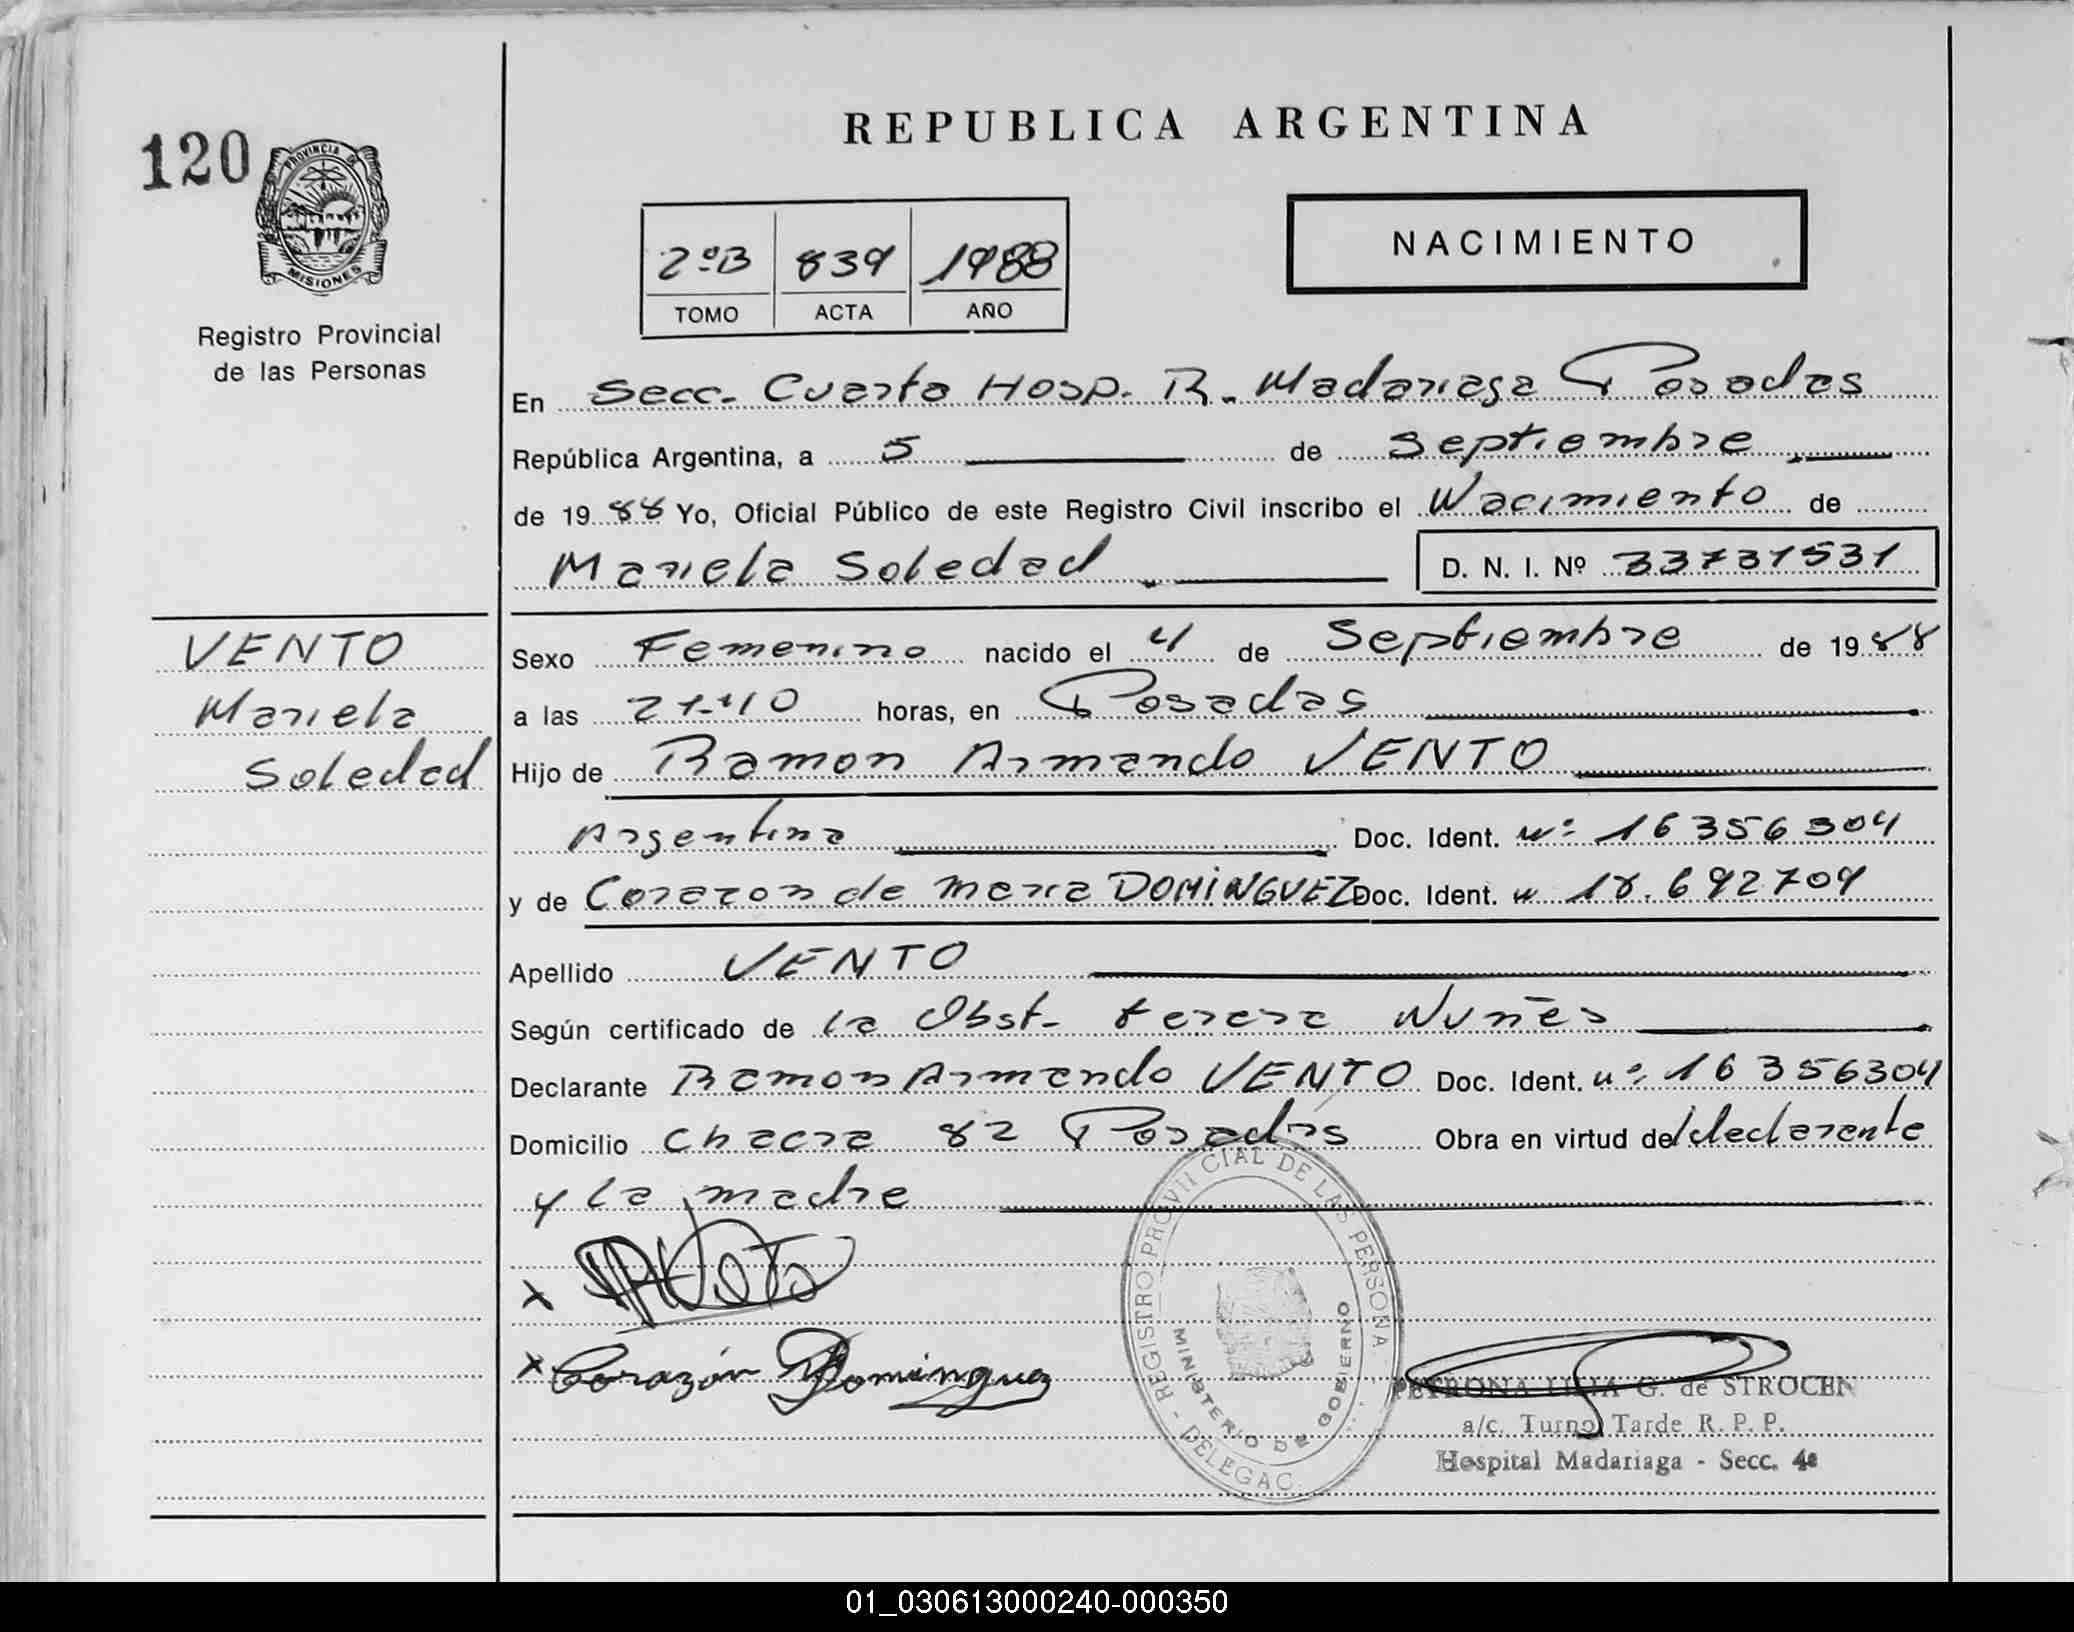 120
PROVINCIA DE
MISIONES
Registro Provincial
de las Personas
REPUBLICA ARGENTINA
2ºB 839 1988
TOMO ACTA AÑO
NACIMIENTO
En Secc. Cuarta Hosp. R. Madariaga Posadas
República Argentina, a 5 de Septiembre
de 1988 Yo, Oficial Público de este Registro Civil inscribo el Nacimiento de
Mariela Soledad D. N. I. Nº 33731531
VENTO
Mariela
Soledad
Sexo Femenino nacido el 4 de Septiembre de 1988
a las 21-40 horas, en Posadas
Hijo de Ramon Armando VENTO
Argentina Doc. Ident. nº 16356304
y de Corazon de Maria DOMINGUEZ Doc. Ident. n 18.692709
Apellido VENTO
Según certificado de la Obst. teresa Nuñes
Declarante Ramon Armando VENTO Doc. Ident. nº 16356304
Domicilio chacra 82 Posadas Obra en virtud del declarante
y la madre
x
x Corazón Dominguez
REGISTRO PROVINCIAL DE LAS PERSONA
MINISTERIO DE GOBIERNO
DELEGAC.
PETRONA LILIA G. de STROCEN
a/c. Turno Tarde R. P. P.
Hospital Madariaga - Secc. 4ª
01_030613000240-000350